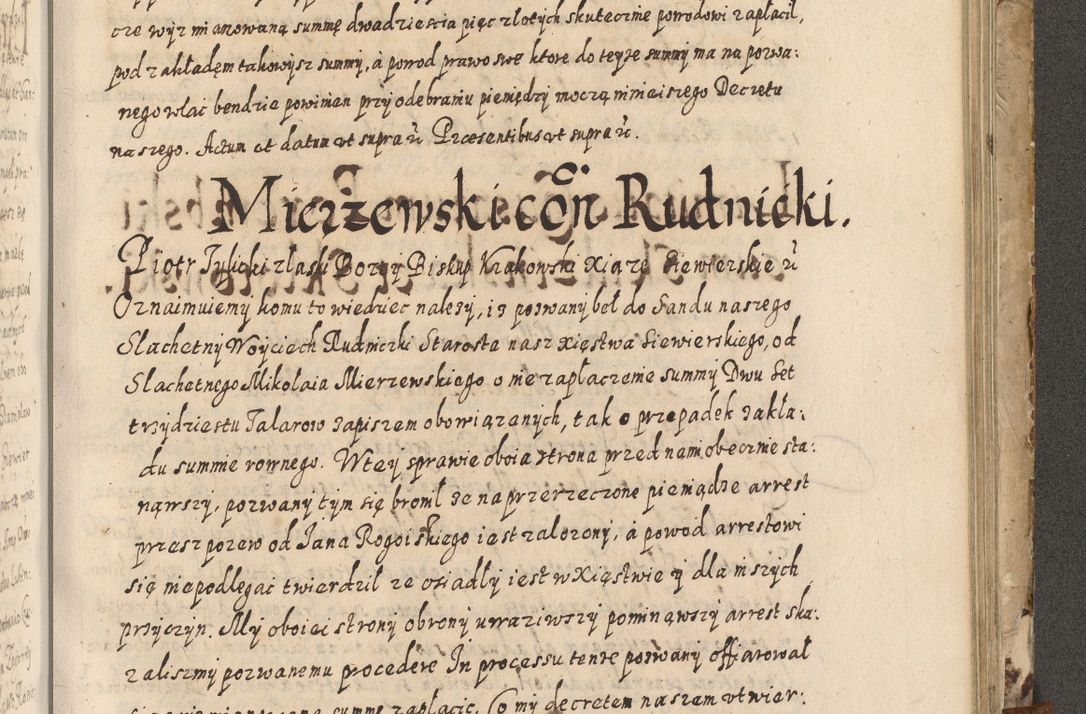 cze wyz mianowaną summę dwadziescia pięc złotych skutecznie powodowi zapłacił,
pod zakładem takowysz summy, á powod prawo swe ktore do teyże summy ma na pozwa:
nego wlać bendzie powinien przy odebraniu pieniędzy moczą ninieiszego Decretu
naszego. Actum et datum ut supra &c Praesentibus ut supra &c.
Mierzewski con Rudnicki.
Piotr Tylicki z łaski Bozey Biskup Krakowski Xiąże Siewierskie &c
Oznaimuiemy komu to wiedziec nalezy, iz pozwany beł do Sandu naszego
Slachetny Woyciech Rudniczki Starosta nasz Xięstwa Siewierskiego, od
Slachetnego Mikołaia Mierzewskiego o nie zapłaczenie summy Dwu Set
trzydziestu Talarow zapiszem obowiązanych, tak o przepadek zakła:
du summie rownego. W tey sprawie oboia strona przed nami obecznie sta:
nąwszy, pozwany tym się bronił ze na przerzeczone pieniądze arrest
przez pozew od Jana Rogoiskiego iest załozony, á powod arrestowi
się niepodlęgać twierdził ze osiadły iest w Xięstwie y dla inszych
przyczyn. My oboiei strony obrony uwaziwszy pominąwszy arrest ska:
zaliszmy pozwanemu procedere In processu tenze pozwany offiarował
się wyzmianowaną summę zapłacic. Co my decretem naszem utwier: